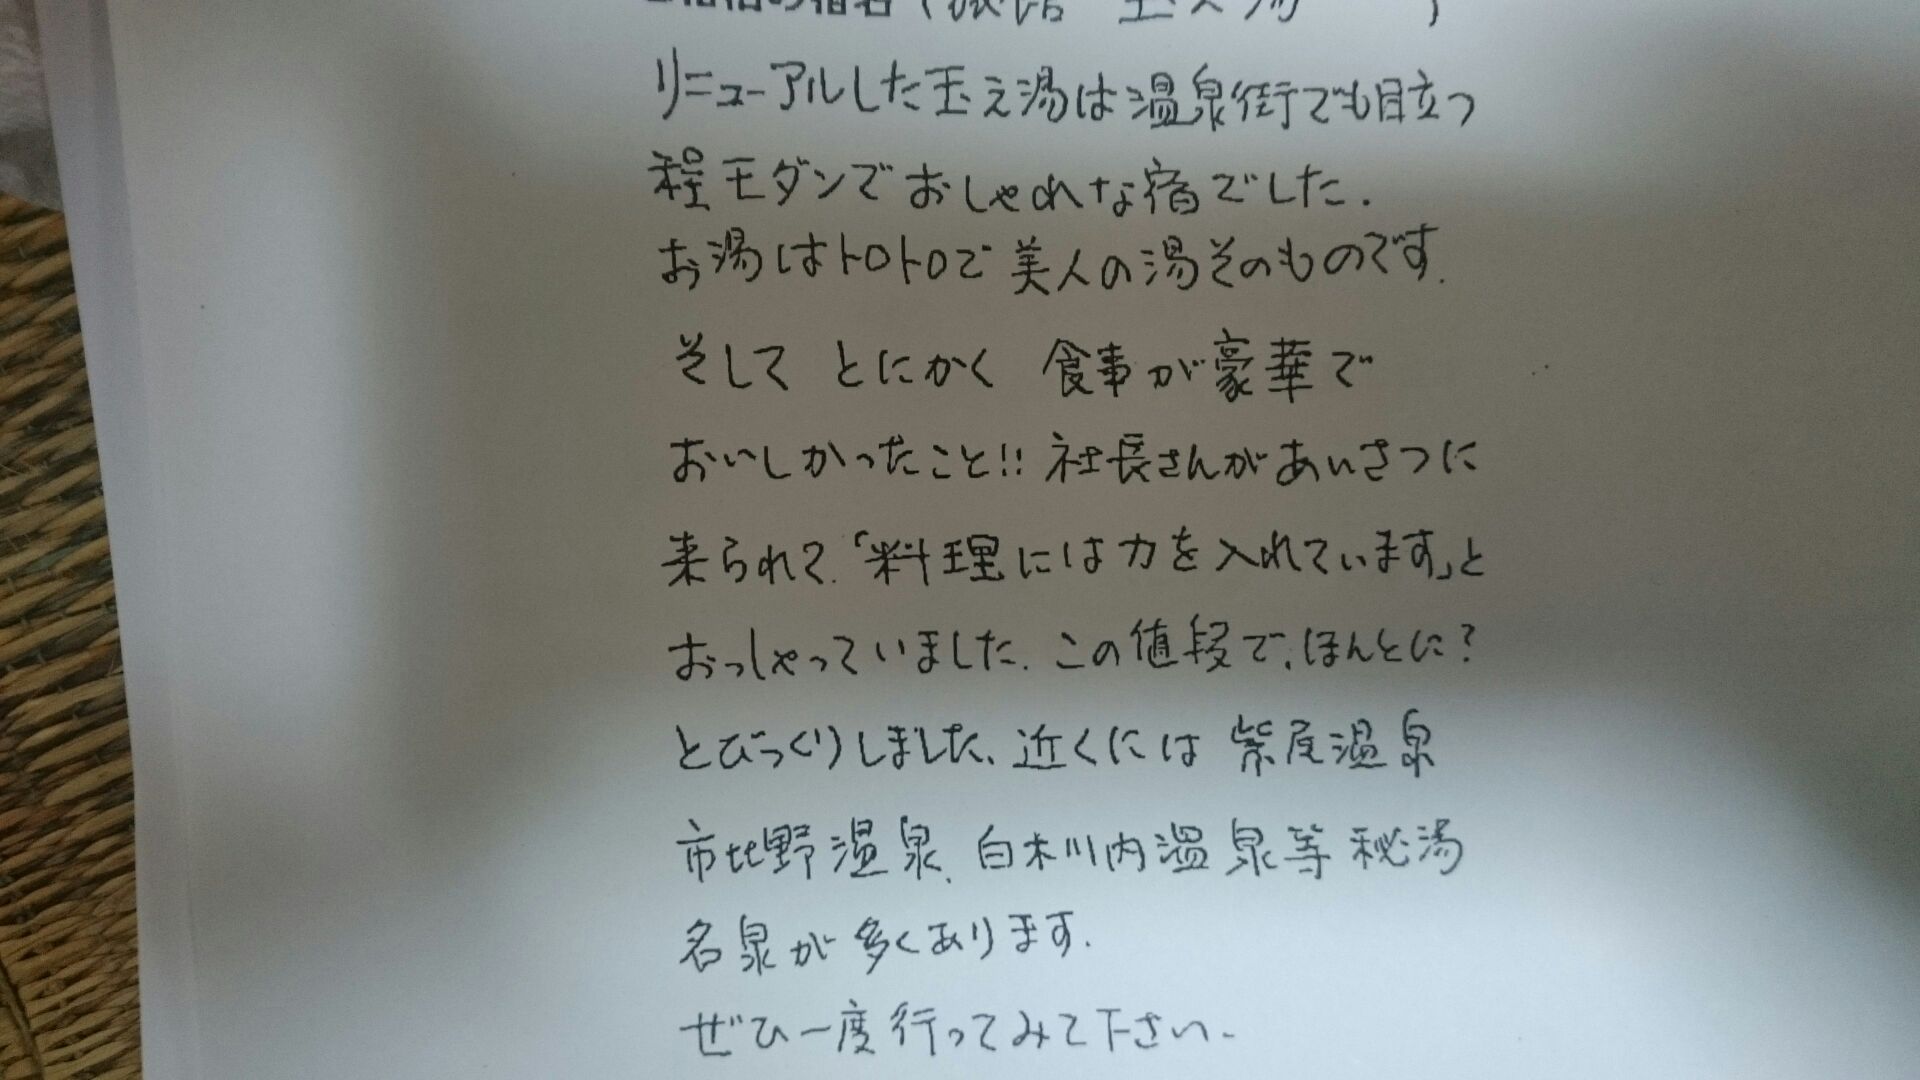 の宿名(旅館 玉之湯 )
リニューアルした玉之湯は温泉街でも目立つ
程モダンでおしゃれな宿でした.
お湯はトロトロで美人の湯そのものです.
そして とにかく 食事が豪華で
おいしかったこと!! 社長さんがあいさつに
来られて.「料理には力を入れています」と
おっしゃっていました. この値段で、ほんとに?
とびっくりしました、近くには 紫尾温泉
市比野温泉、白木川内温泉等秘湯
名泉が多くあります.
ぜひ一度行ってみて下さい.